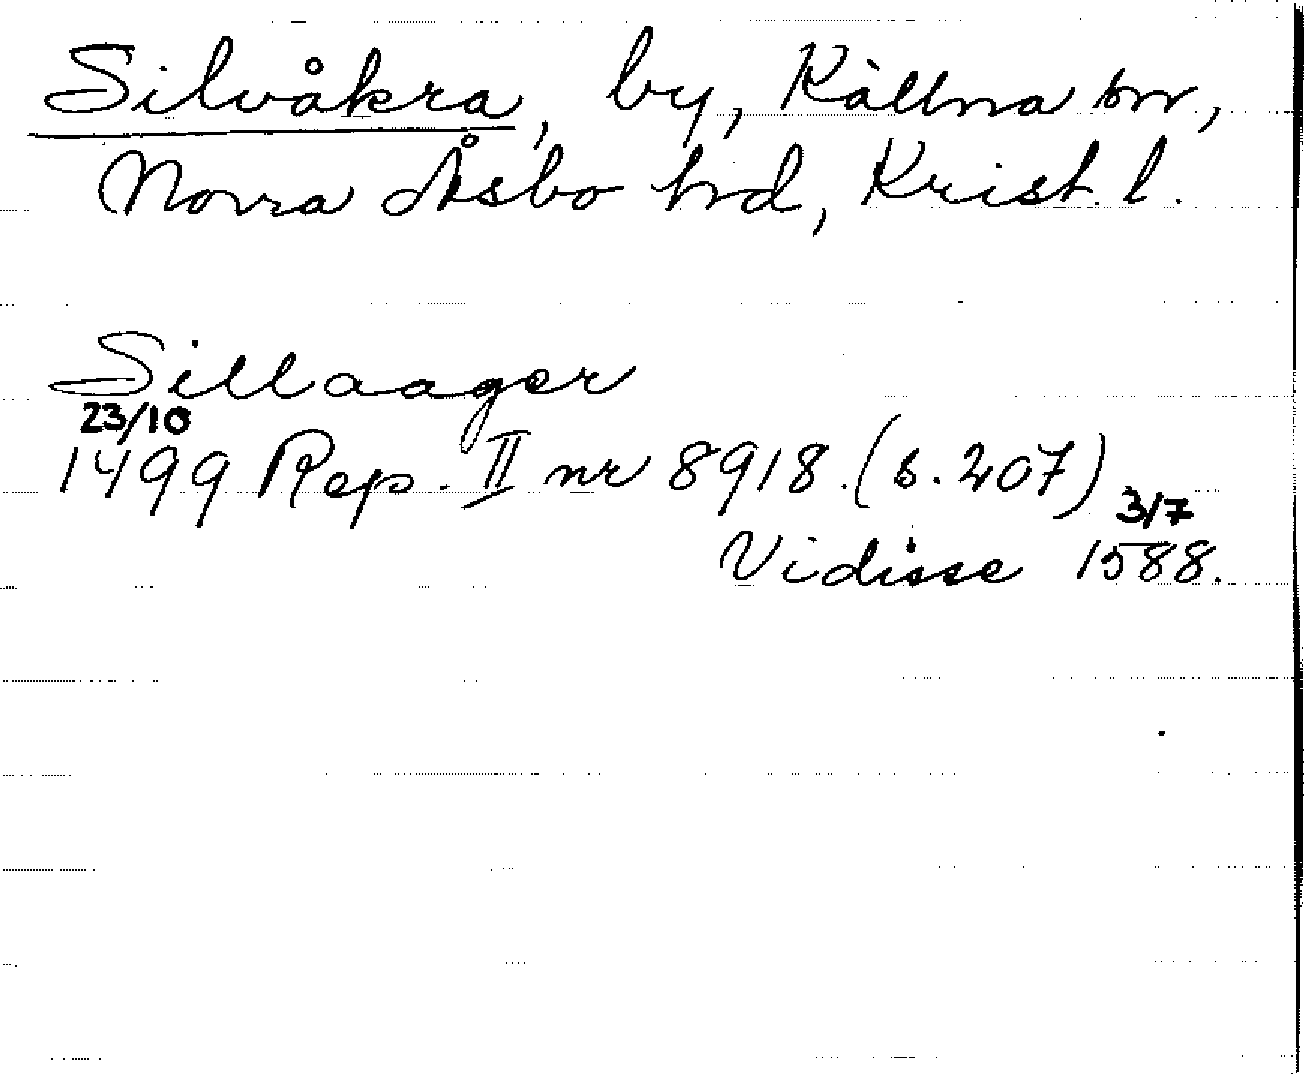 Silvåkra, by, Källna sn,
Norra Åsbo hd, Krist. l.
Sillaager
23/10
1499 Rep. II nr 8918. (s. 207)
3/7
Vidisse 1588.